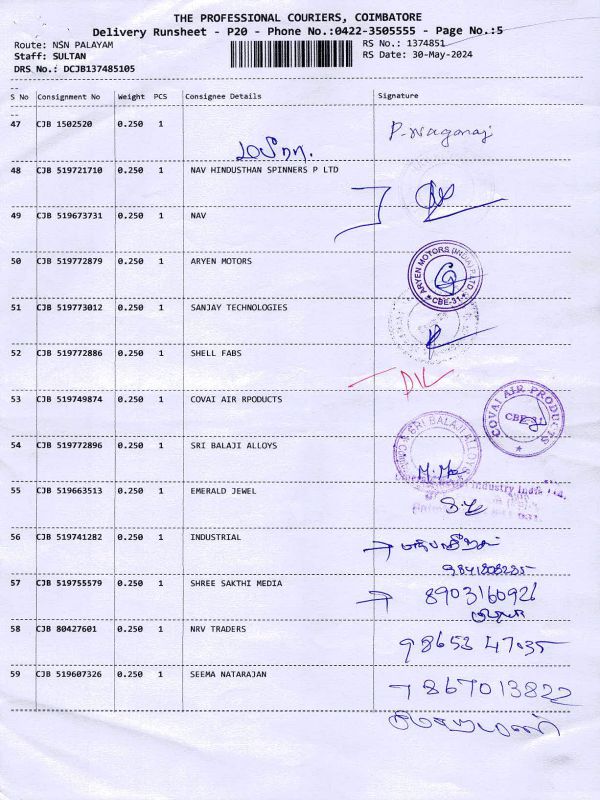 THE PROFESSIONAL COURIERS, COIMBATORE
Delivery Runsheet - P20 - Phone No.:0422-3505555 - Page No.:5
Route: NSN PALAYAM RS No.: 1374851
Staff: SULTAN RS Date: 30-May-2024
DRS No.: DCJB137485105
S No Consignment No Weight PCS Consignee Details Signature
47 CJB 1502520 0.250 1 P. Nagaraj
48 CJB 519721710 0.250 1 NAV HINDUSTHAN SPINNERS P LTD
49 CJB 519673731 0.250 1 NAV
50 CJB 519772879 0.250 1 ARYEN MOTORS
ARYEN MOTORS (INDIA) P LTD. CBE-31
51 CJB 519773012 0.250 1 SANJAY TECHNOLOGIES
52 CJB 519772886 0.250 1 SHELL FABS
53 CJB 519749874 0.250 1 COVAI AIR RPODUCTS
COVAI AIR PRODUCTS CBE-31
54 CJB 519772896 0.250 1 SRI BALAJI ALLOYS
SRI BALAJI ALLOYS
55 CJB 519663513 0.250 1 EMERALD JEWEL
Industry India Ltd.
56 CJB 519741282 0.250 1 INDUSTRIAL
57 CJB 519755579 0.250 1 SHREE SAKTHI MEDIA 8903160926
58 CJB 80427601 0.250 1 NRV TRADERS 98653 47035
59 CJB 519607326 0.250 1 SEEMA NATARAJAN 7867013822